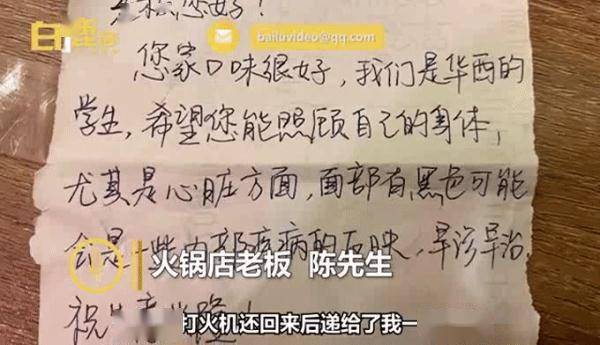 白鹿视频
老板您好!
bailuvideo@qq.com
您家口味很好,我们是华西的
学生,希望您能照顾自己的身体,
尤其是心脏方面,面部有黑色可能
会是一些内部疾病的反映,早诊早治,
祝生意兴隆!
火锅店老板 陈先生
打火机还回来后递给了我一